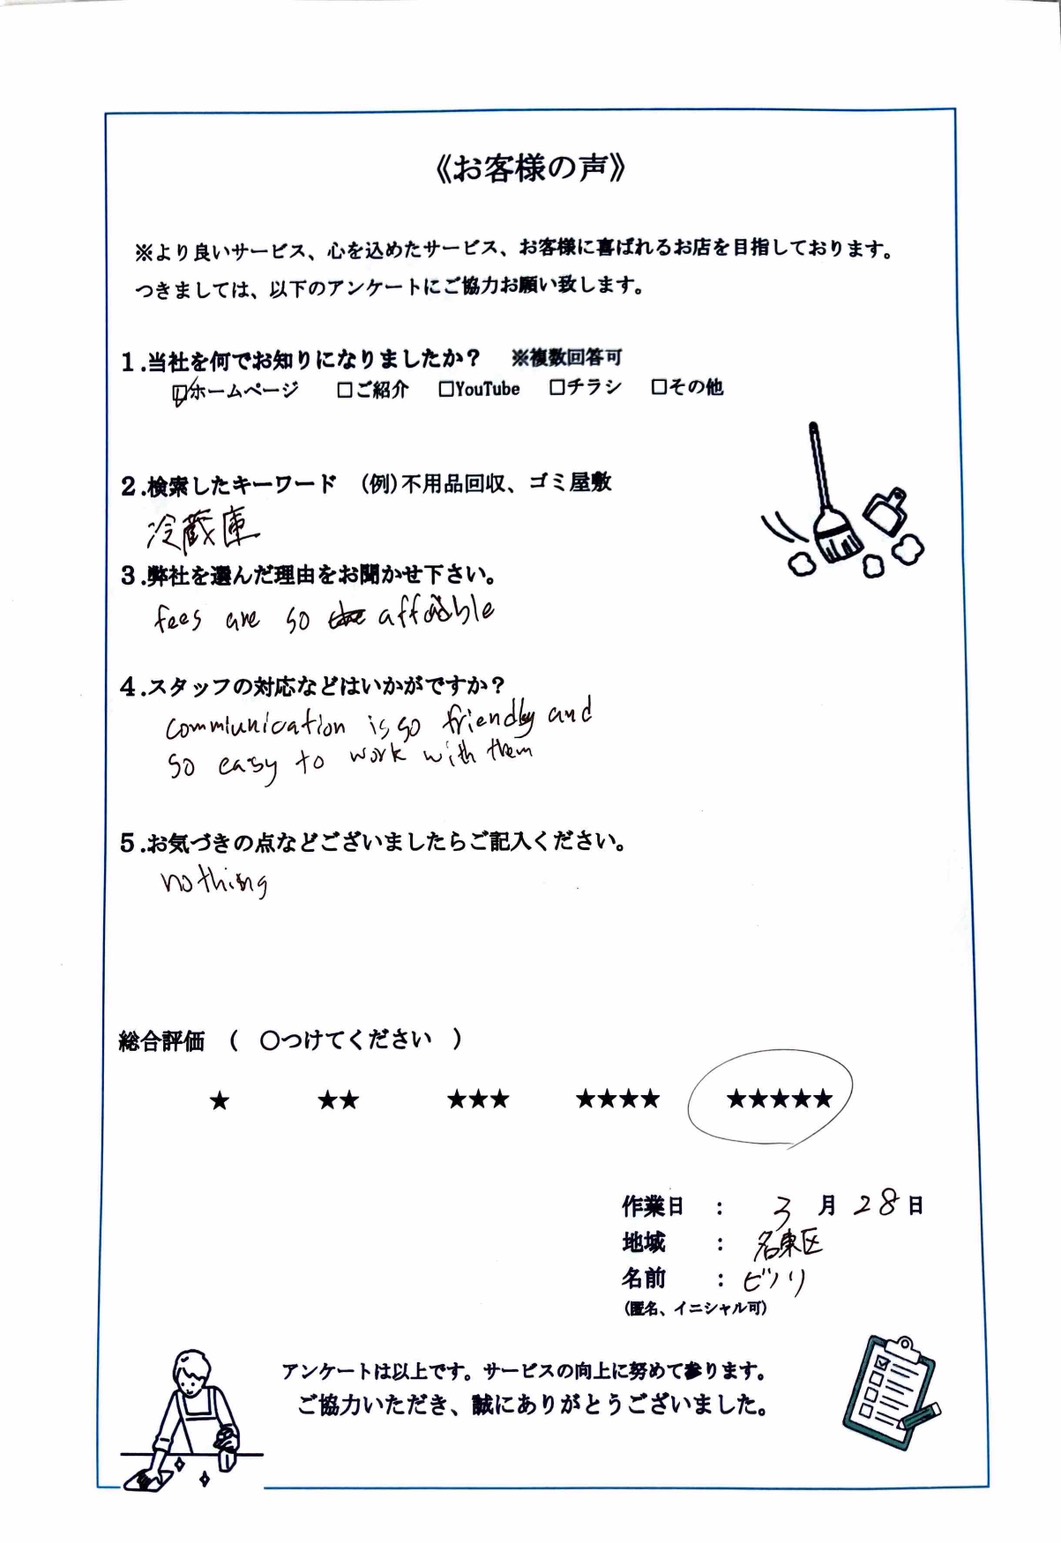 《お客様の声》
※より良いサービス、心を込めたサービス、お客様に喜ばれるお店を目指しております。
つきましては、以下のアンケートにご協力お願い致します。
1.当社を何でお知りになりましたか？ ※複数回答可
☑ホームページ □ご紹介 □YouTube □チラシ □その他
2.検索したキーワード (例)不用品回収、ゴミ屋敷
冷蔵庫
3.弊社を選んだ理由をお聞かせ下さい。
fees are so affodable
4.スタッフの対応などはいかがですか？
commiunication is so friendly and
so easy to work with them
5.お気づきの点などございましたらご記入ください。
nothing
総合評価 ( ○つけてください )
★ ★★ ★★★ ★★★★ ★★★★★
作業日 : 3 月 28 日
地域 : 名東区
名前 : ビノリ
(匿名、イニシャル可)
アンケートは以上です。サービスの向上に努めて参ります。
ご協力いただき、誠にありがとうございました。